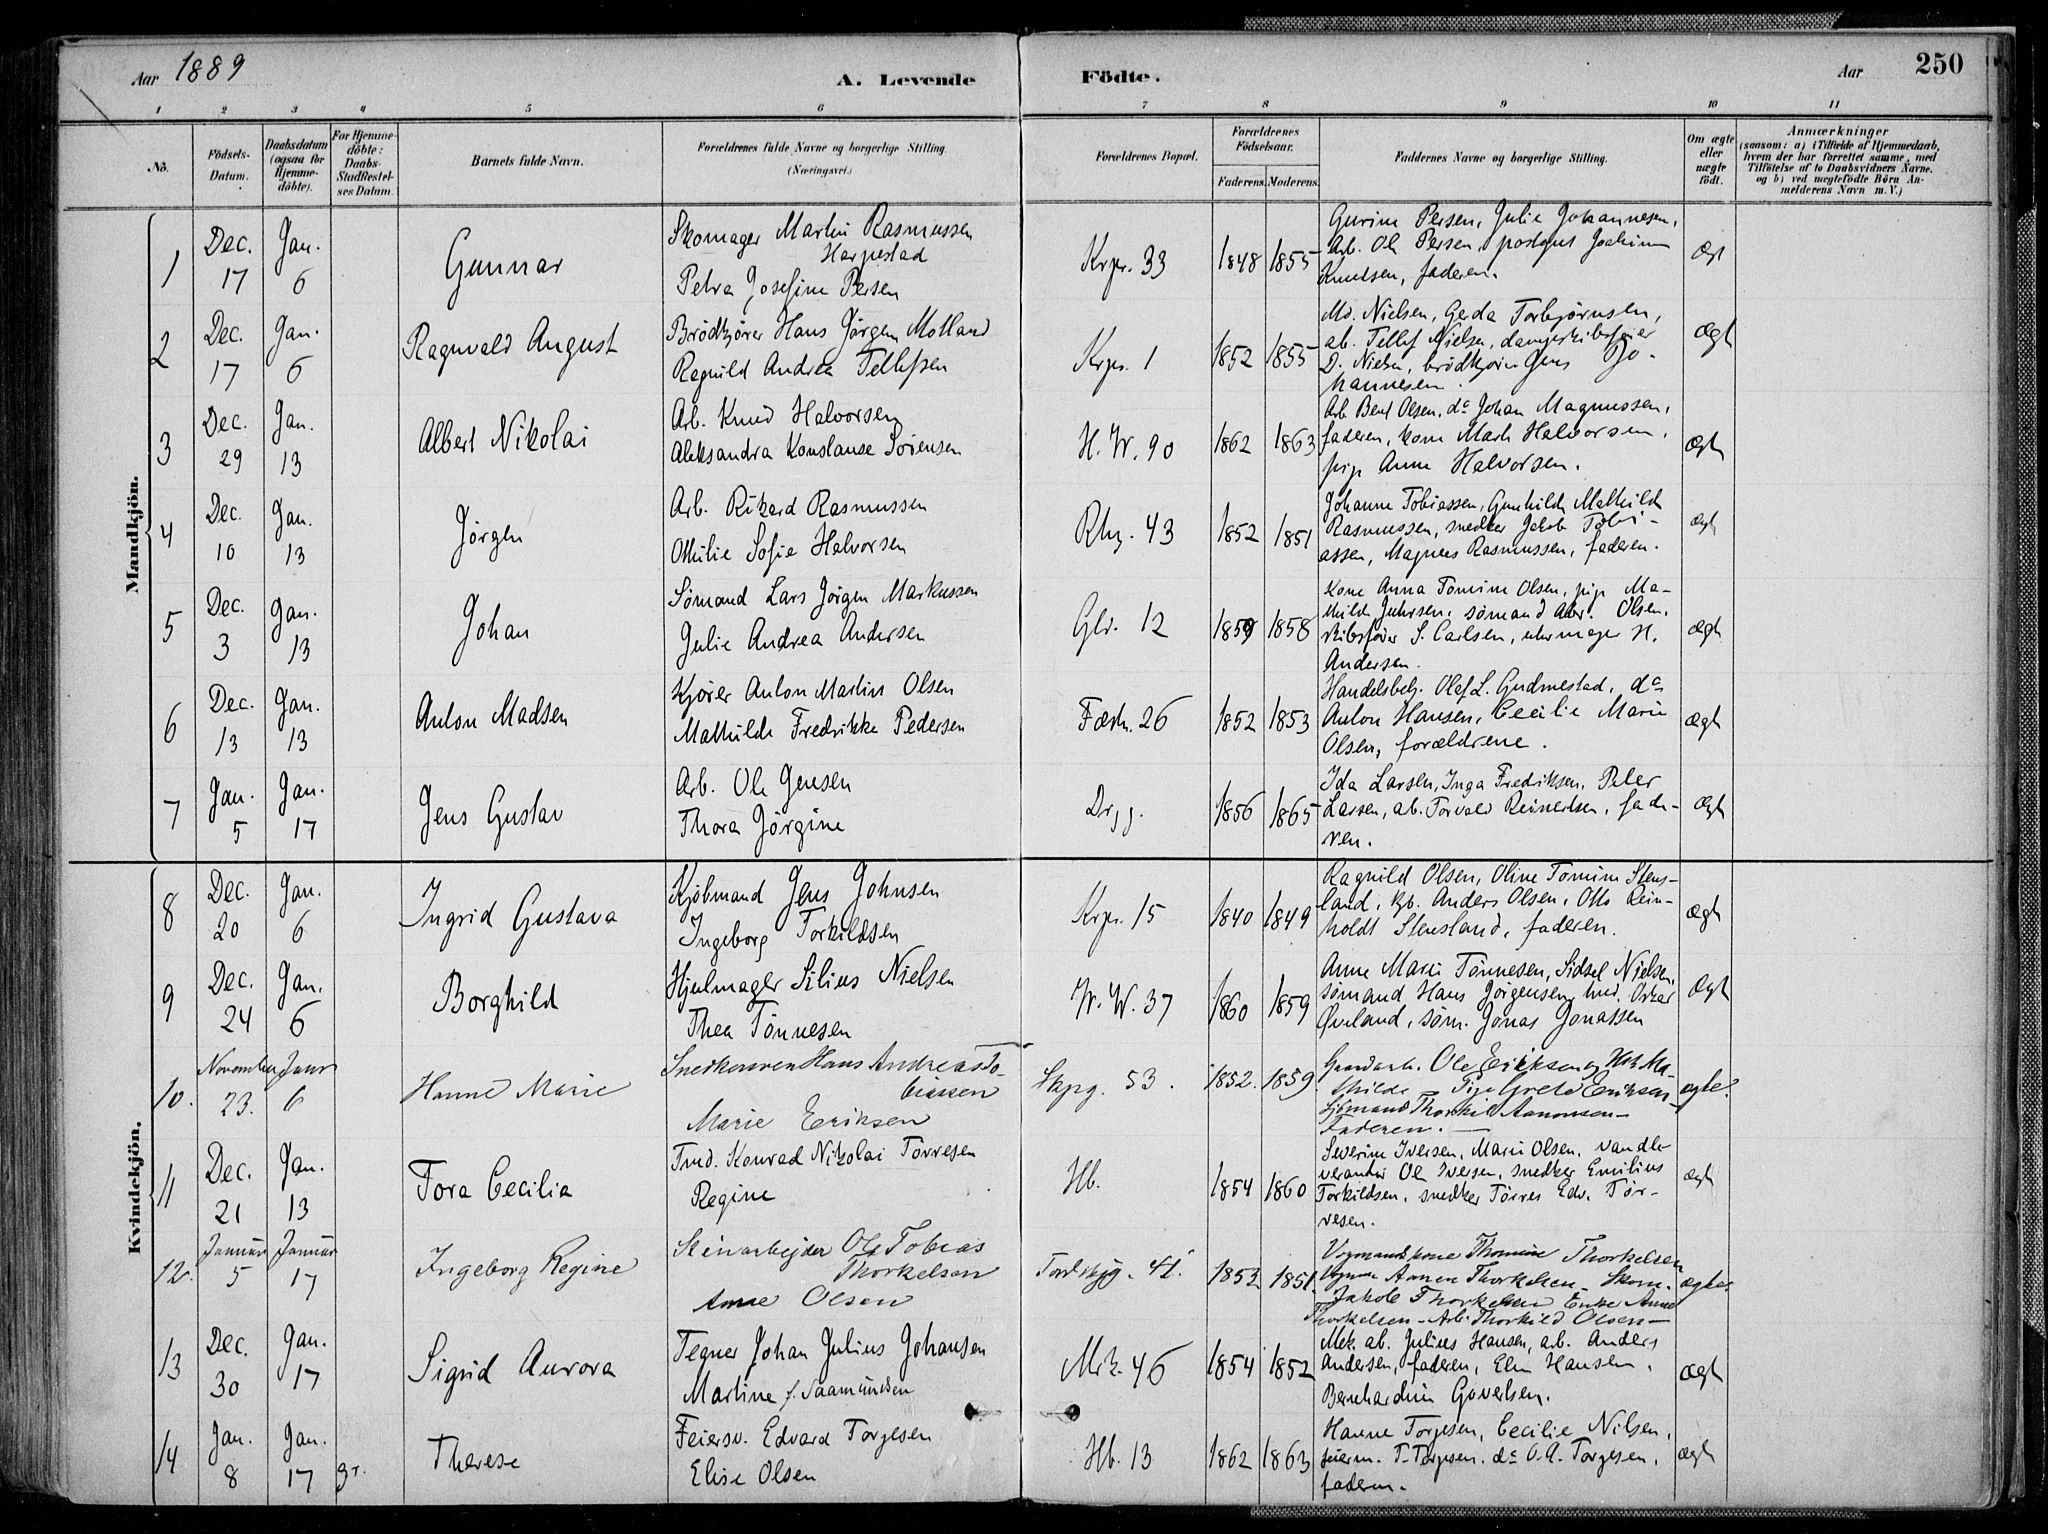 Aar 1889
A. Levende
Födte.
Aar
250
1 2 3 4 5 6 7 8 9 10 11
No.
Födsels-
Datum.
Daabsdatum
(ogsaa for
Hjemme-
döbte).
For Hjemme-
döbte:
Daabs-
Stadfestel-
ses Datum.
Barnets fulde Navn.
Forældrenes fulde Navne og borgerlige Stilling.
(Næringsvei.)
Forældrenes Bopæl.
Forældrenes
Födselsaar.
Faderens. Moderens.
Faddernes Navne og borgerlige Stilling.
Om ægte
eller
uægte
födt.
Anmærkninger
(saasom: a) i Tilfælde af Hjemmedaab,
hvem der har forrettet samme, med
Tilföielse af to Daabsvidners Navne.
og b) ved uægtefödte Börn An-
melderens Navn m. V.)
Mandkjön.
1 Dec. 17 Jan. 6 Gunnar
Skomager Martin Rasmussen
Harpestad
Petra Josefine Persen
Krpr. 33 1848 1855
Gurine Persen, Julie Johannesen,
Arb. Ole Persen, Joakim
Knudsen, faderen.
Ægt
2 Dec. 17 Jan. 6 Ragnvald August
Brödkjörer Hans Jörgen Molland
Ragnild Andrea Tellefsen
Krpr. 1 1852 1855
Md. Nielsen, Gerda Torbjörnsen,
ab. Tellef Nielsen, dampskibsfører
D. Nielsen, brödkjörer Jens Jo-
hannesen.
Ægt
3 Dec. 29 Jan. 13 Albert Nikolai
Arb. Knud Halvorsen
Aleksandra Konstanse Sörensen
H. W. 90 1862 1863
Arb. Bent Olsen, do Johan Magnussen,
faderen, kone Marh. Halvorsen,
pige Anne Halvorsen.
ægt
4 Dec. 10 Jan. 13 Jörgen
Arb. Rikard Rasmussen
Othilie Sofie Halvorsen
43 1852 1851
Johanne Tobiassen, Gunhild Mathild
Rasmussen, snedker Jakob Tobi-
assen, Magnus Rasmussen, faderen.
ægt
5 Dec. 3 Jan. 13 Johan
Sömand Lars Jörgen Markussen
Julie Andrea Andersen
12 1859 1858
Kone Anna Tomine Olsen, pige Ma-
thild Juhrsen, sömand Olsen,
skibsförer S. Carlsen, uhrmager H.
Andersen.
ægt
6 Dec. 13 Jan. 13 Anton Madsen
Kjörer Anton Martin Olsen
Mathilde Fredrikke Pedersen
Fæstn. 26 1852 1853
Handelsbetj. Olaf L. Gudmestad, do
Anton Hansen, Cecilie Marie
Olsen, forældrene.
ægt
7 Jan. 5 Jan. 17 Jens Gustav
Arb. Ole Jensen
Thora Jörgine
1856 1865
Ida Larsen, Inga Fredriksen, Peter
Larsen, ab. Torvald Reinertsen, fade-
ren.
ægt
Kvindekjön.
8 Dec. 20 Jan. 6 Ingrid Gustava
Kjöbmand Jens Johnsen
Ingeborg Torkildsen
Krpr. 15 1840 1849
Ragnild Olsen, Oline Tomine Stens-
land, kjb. Anders Olsen, Otto Rein-
holdt Stensland, faderen.
ægt
9 Dec. 24 Jan. 6 Borghild
Hjulmager Silius Nielsen
Thea Tönnesen
W. W. 37 1860 1859
Anne Marie Tönnesen, Sidsel Nielsen,
sömand Hans Jörgensen, Oskar
Øverland, söm. Jonas Jonassen
Ægt
10. November 23. Januar 6 Hanne Marie
Snedkersven Hans Andreas To-
biassen
Marie Eriksen
Skpg. 53. 1852. 1859
Ole Eriksen og Ma-
thilde – Pige Grete Eriksen –
Thorkil Aanonsen –
Faderen. –
ægte.
11 Dec. 21 Jan. 13 Tora Cecilia
Tmd. Konrad Nikolai Törresen
Regine
Hb. 1854 1860
Severine Iversen, Marie Olsen, vandle-
verandör Ole Iversen, snedker Emilius
Torkildsen, snedker Törres Edv. Tör-
resen.
ægt
12. Januar 5 Januar 17 Ingeborg Regine
Stenarbejder Ole Tobias
Thorkelsen
Anne Olsen
41. 1853 1851
Vognmandskone Thomine Thorkelsen
Aanen Thorkelsen – Skom.
Jakob Thorkelsen Enke Anne
Thorkelsen – Arb. Thorkild Olsen –
ægte.
13 Dec. 30 Jan. 17 Sigrid Aurora
Tegner Johan Julius Johansen
Martine f. Saamundsen
Mrk. 46 1854 1852
Mek. ab. Julius Hansen, arb. Anders
Andersen, faderen, Elen Hansen,
Bernhardine Govertsen.
ægt
14 Jan. 8 Jan. 17 Therese
Feiersv. Edvard Torgesen
Elise Olsen
Hb. 13 1862 1863
Hanne Torgesen, Cecilie Nilsen,
feierm. T. Torgesen, do O. A. Torgesen,
faderen.
ægt